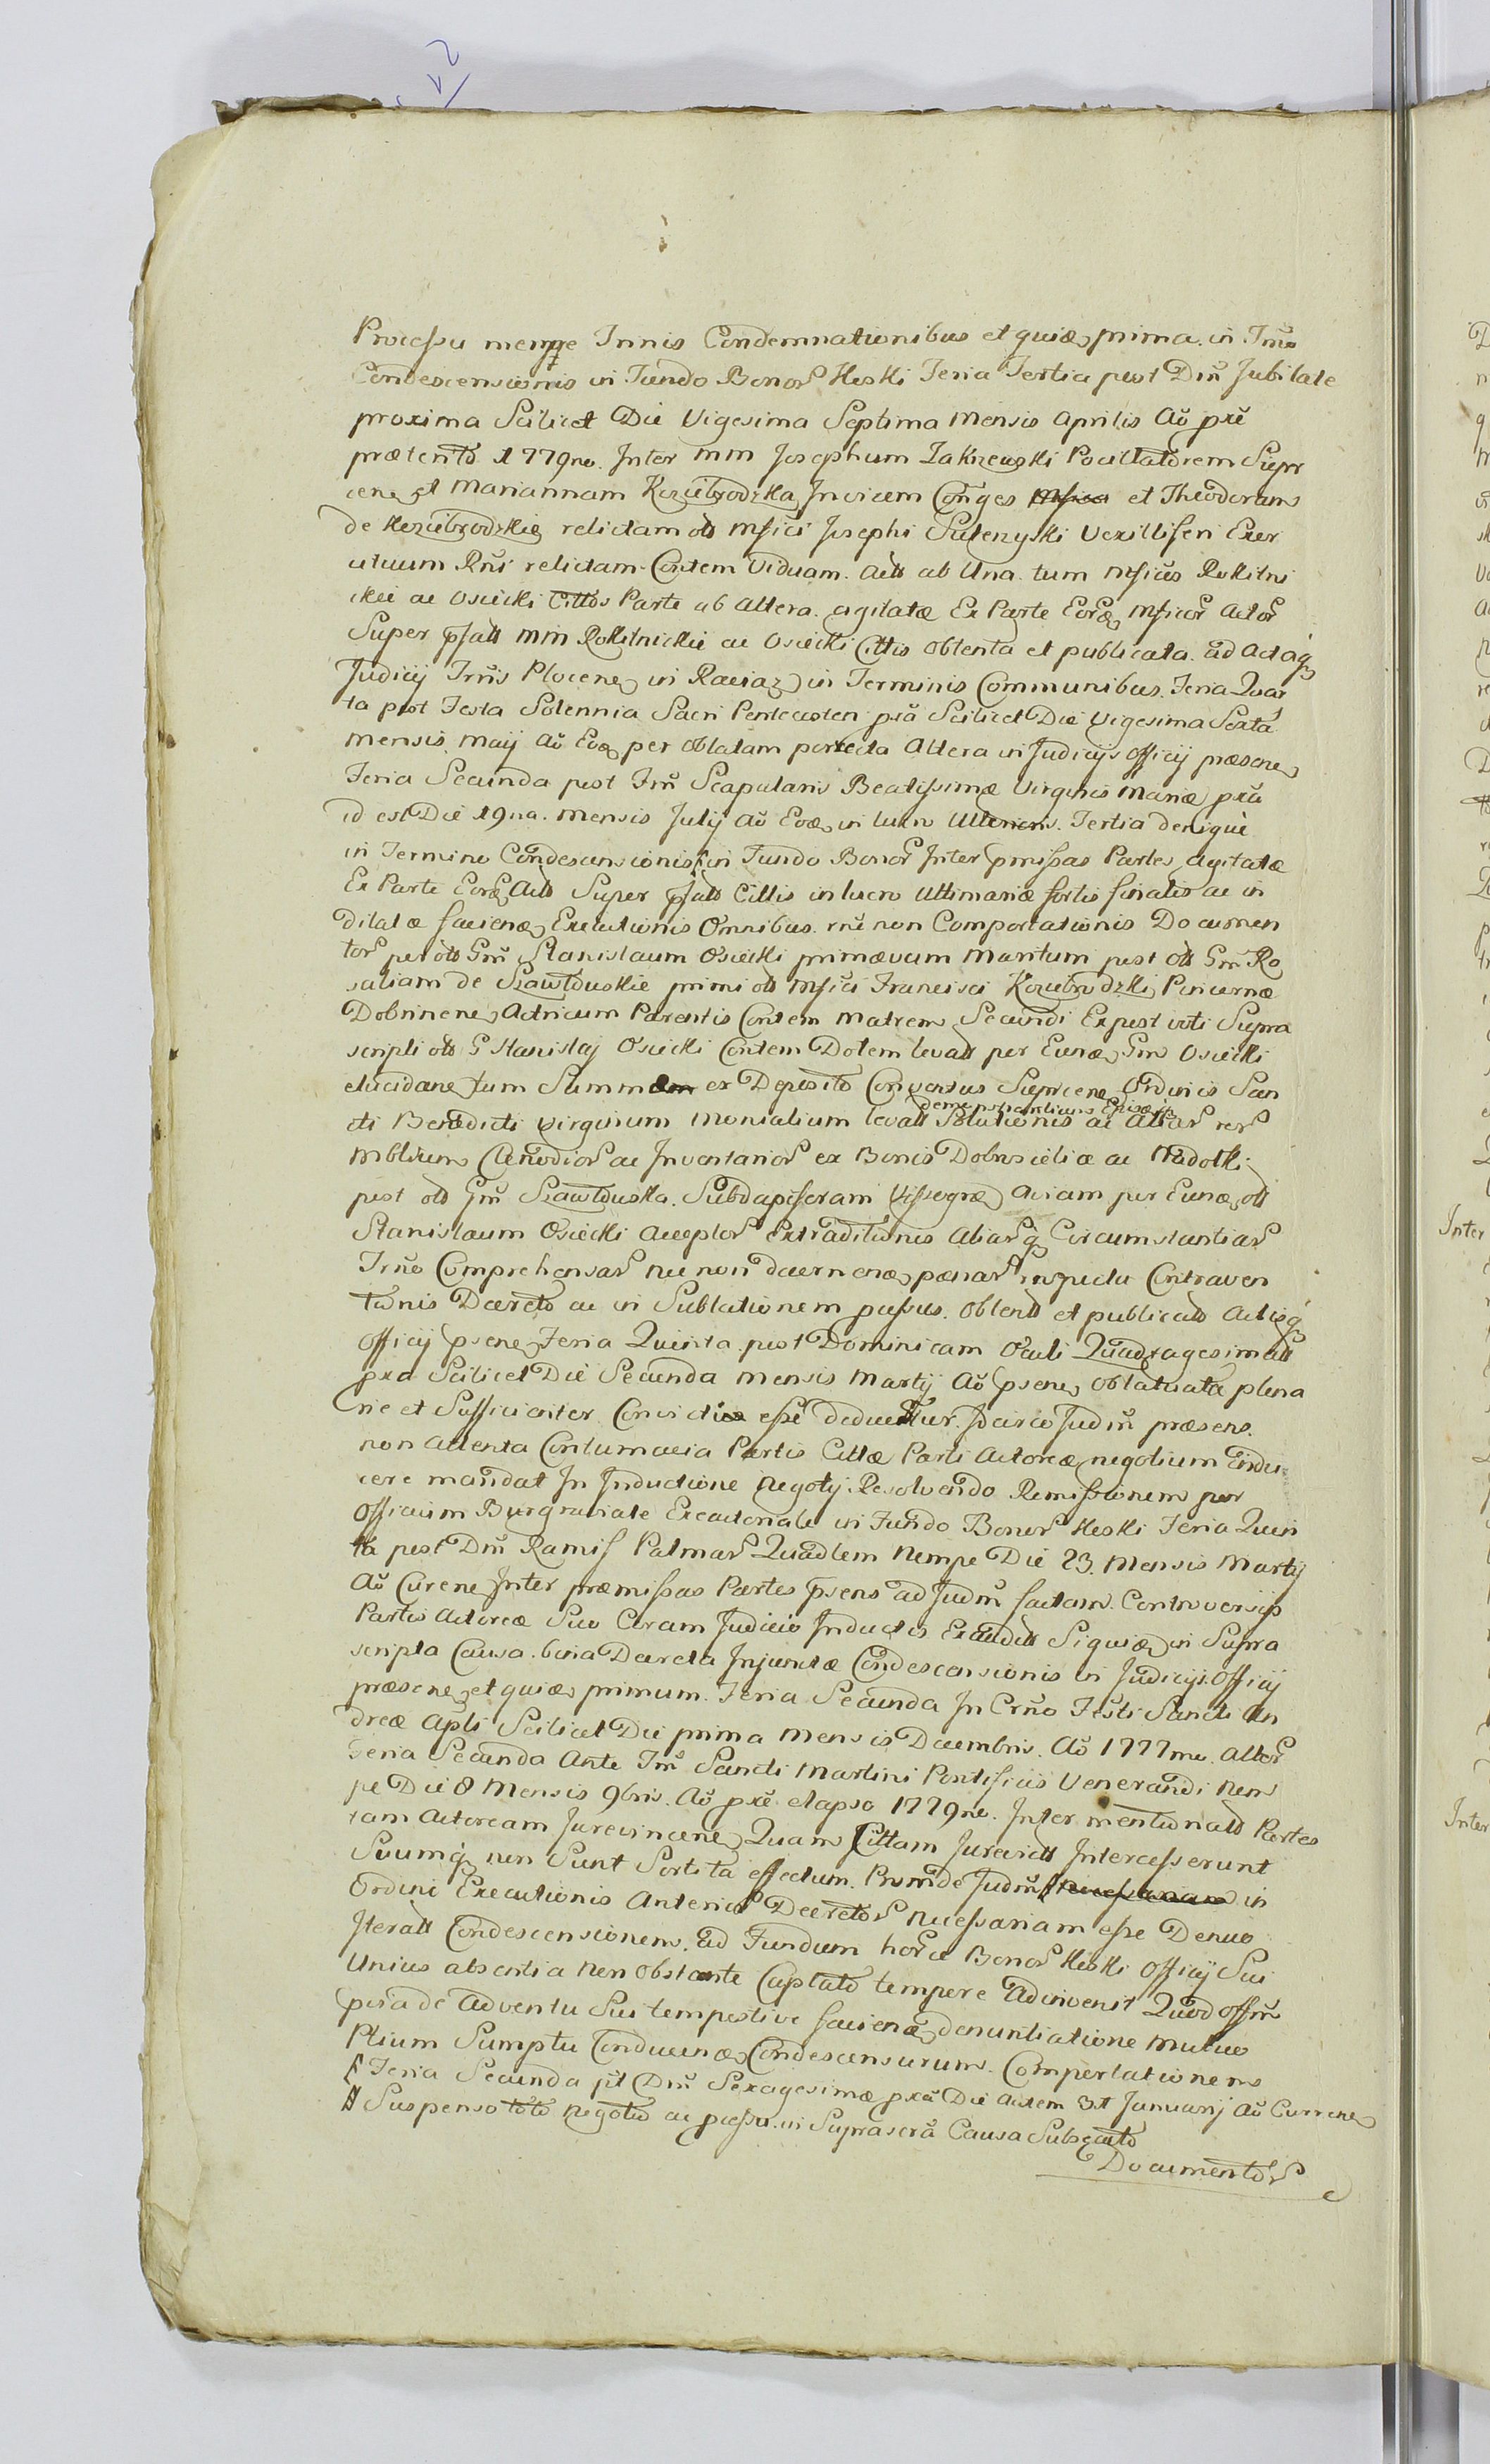 Processu nempe Trinis Condemnationibus et quidē prima in Tm̃o
Condescensionis in Fundo Bonor Keski Feria Tertia post Dm̃ Jubilate
proxima Scilicet Die Vigesima Septima Mensis Aprilis Aõ pxẽ
præterito 1779no. Inter MM Josephum Zakrzewski Pocillatorem Supr
cene et Mariannam Koziebrodzka Invicem Conges et Theodoram
de Koziebrodzkie relictam olb Mfici Josephi Vexilliferi Exer
cituum Rñi relictam Contem Viduam. Actt ab Una tum Mficũs Rokitni
ckii ac Osiecki Cittõs Parte ab altera agitatæ Ex Parte Eorde Mficor Actor
Super pfatt MM Rokitnickie ac Osiecki Cittis obtenta et publicata ad Actaq
Judicij Trr̃is Plocene in Raciaz in Terminis Communibus Feria Quar
ta post Festa Solennia Sacri Pentecosten pxã Scilicet Die Vigesima Sexta
Mensis Maij Aõ Eode per Oblatam porrecta Altera in Judicijs Officij præsene
Feria Secunda post Fm̃ Scapularis Beatissimæ Virginis Mariæ pxũ
id est Die 19na. Mensis Julij Aõ Eode in lucro Ulterioris. Tertia denique
in Termino Condescensionis in Fundo Bonor Inter pmissas Partes agitatæ
Ex Parte Eorde Actt Super pfatt Cittis in lucro Ultimariæ sortis finalis ac in
dilatæ faciende Executionis Omnibus rñe non Comportationis Documen
tor per olb Gm̃ Stanislaum Osiecki primævum Maritum post olb Gm̃ Ro
saliam de Szawlduskie primi olb Mfici Francisci Koziebrodzki Pincernæ
Dobrinene Actricum Parentis Contem Matrem Secundi Expost voti Supra
scripti olb G Stanislaj Osiecki Contem Dotem levatt per Eunde Gm Osiecki
elucidane tum Summ ex Deposito Conventus Sieprcene Ordinis San
cti Benedicti Virginum Monialium levatt Solutionis ac aliar rer
Mblium Cænodior ac Inventarior ex Bonis Dobrosielice ac Nadolki
post olb Gm̃ Szawlduska Subdapiferam Vissogræ Aviam per Eunde olb
Stanislaum Osiecki Acceptor Extraditionis Aliarq Circumstantiar
Trñe Comprehensar nec non decernende pœnar respectu Contraven
tionis Decreto ac in Sublationem passus obtentt et publicato Actisq
Officij psene Feria Quinta post Dominicam Oculi Quadragesimatt
pxa Scilicet Die Secunda Mensis Martij Aõ psene oblatuata plena
rie et Sufficienter Convictis esse deducitur Idcirco Judm̃ præsens
non attenta Contumacia Partis Cittæ Parti Actoreæ negotium Indu
cere mandat In Inductione Negotij Resolvendo Remissionem per
Officium Burgraviale Exactoriale in Fundo Bonor Keski Feria Quin
ta post Dm̃ Ramis Palmar Quadlem Nempe Die 23. Mensis Martij
Aõ Curene Inter præmissas Partes psens ad Judm̃ factam. Controversijs
Partis Actoreæ Suo Coram Judicio Inductis Exauditt Siquide in Supra
scripta Causa bina Decreta Injunctæ Condescensionis in Judicijs Officij
præsene et quidē primum Feria Secunda In Crño Festi Sancti An
dreæ Apli Scilicet Die prima Mensis Decembris. Aõ 1777mo. Alter
Feria Secunda Ante Fm̃ Sancti Martini Pontificis Venerandi Nem
pe Die 8 Mensis 9bris. Aõ pxẽ elapso 1779no. Inter mentionatt Partes
tam Actoream Jurevincene Quam Cittam Jurevictt Intercesserunt
Suumq non Sunt Sortita effectum. Proinde Judm̃ in
Ordine Executionis Anterior Decretor Necessariam esse Denuo
Iteratt Condescensionem ad Fundum horce Bonor Keski Officij Sui
Unius absentia non obstante Captato tempore adinvenit Quod Offm̃
psa de adventu Sui tempestive faciende denuntiatione mutuo
Ptium Sumptu Conducende Condescensurum. Comportationem
Feria Secunda pt Dm̃ Sexagesimæ pxã Die autem 31 Januarij Aõ Currene
Suspenso toto Negotio ac pcessu in Suprascrã Causa Subsecuto
Documentor